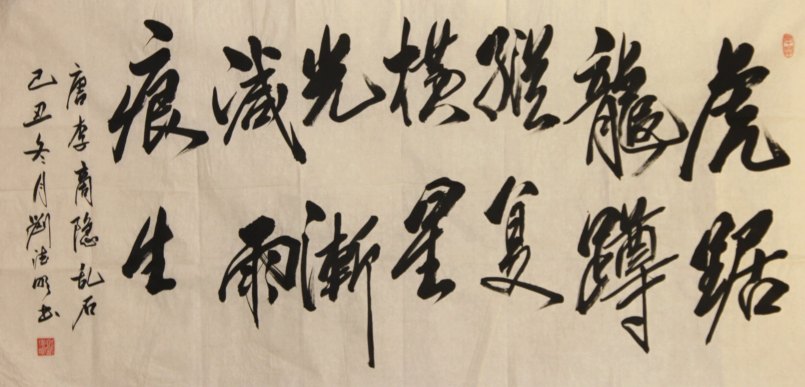 虎踞
龍蹲
縱复
横星
光漸
減雨
痕生
唐李商隐乱石
己丑冬月劉